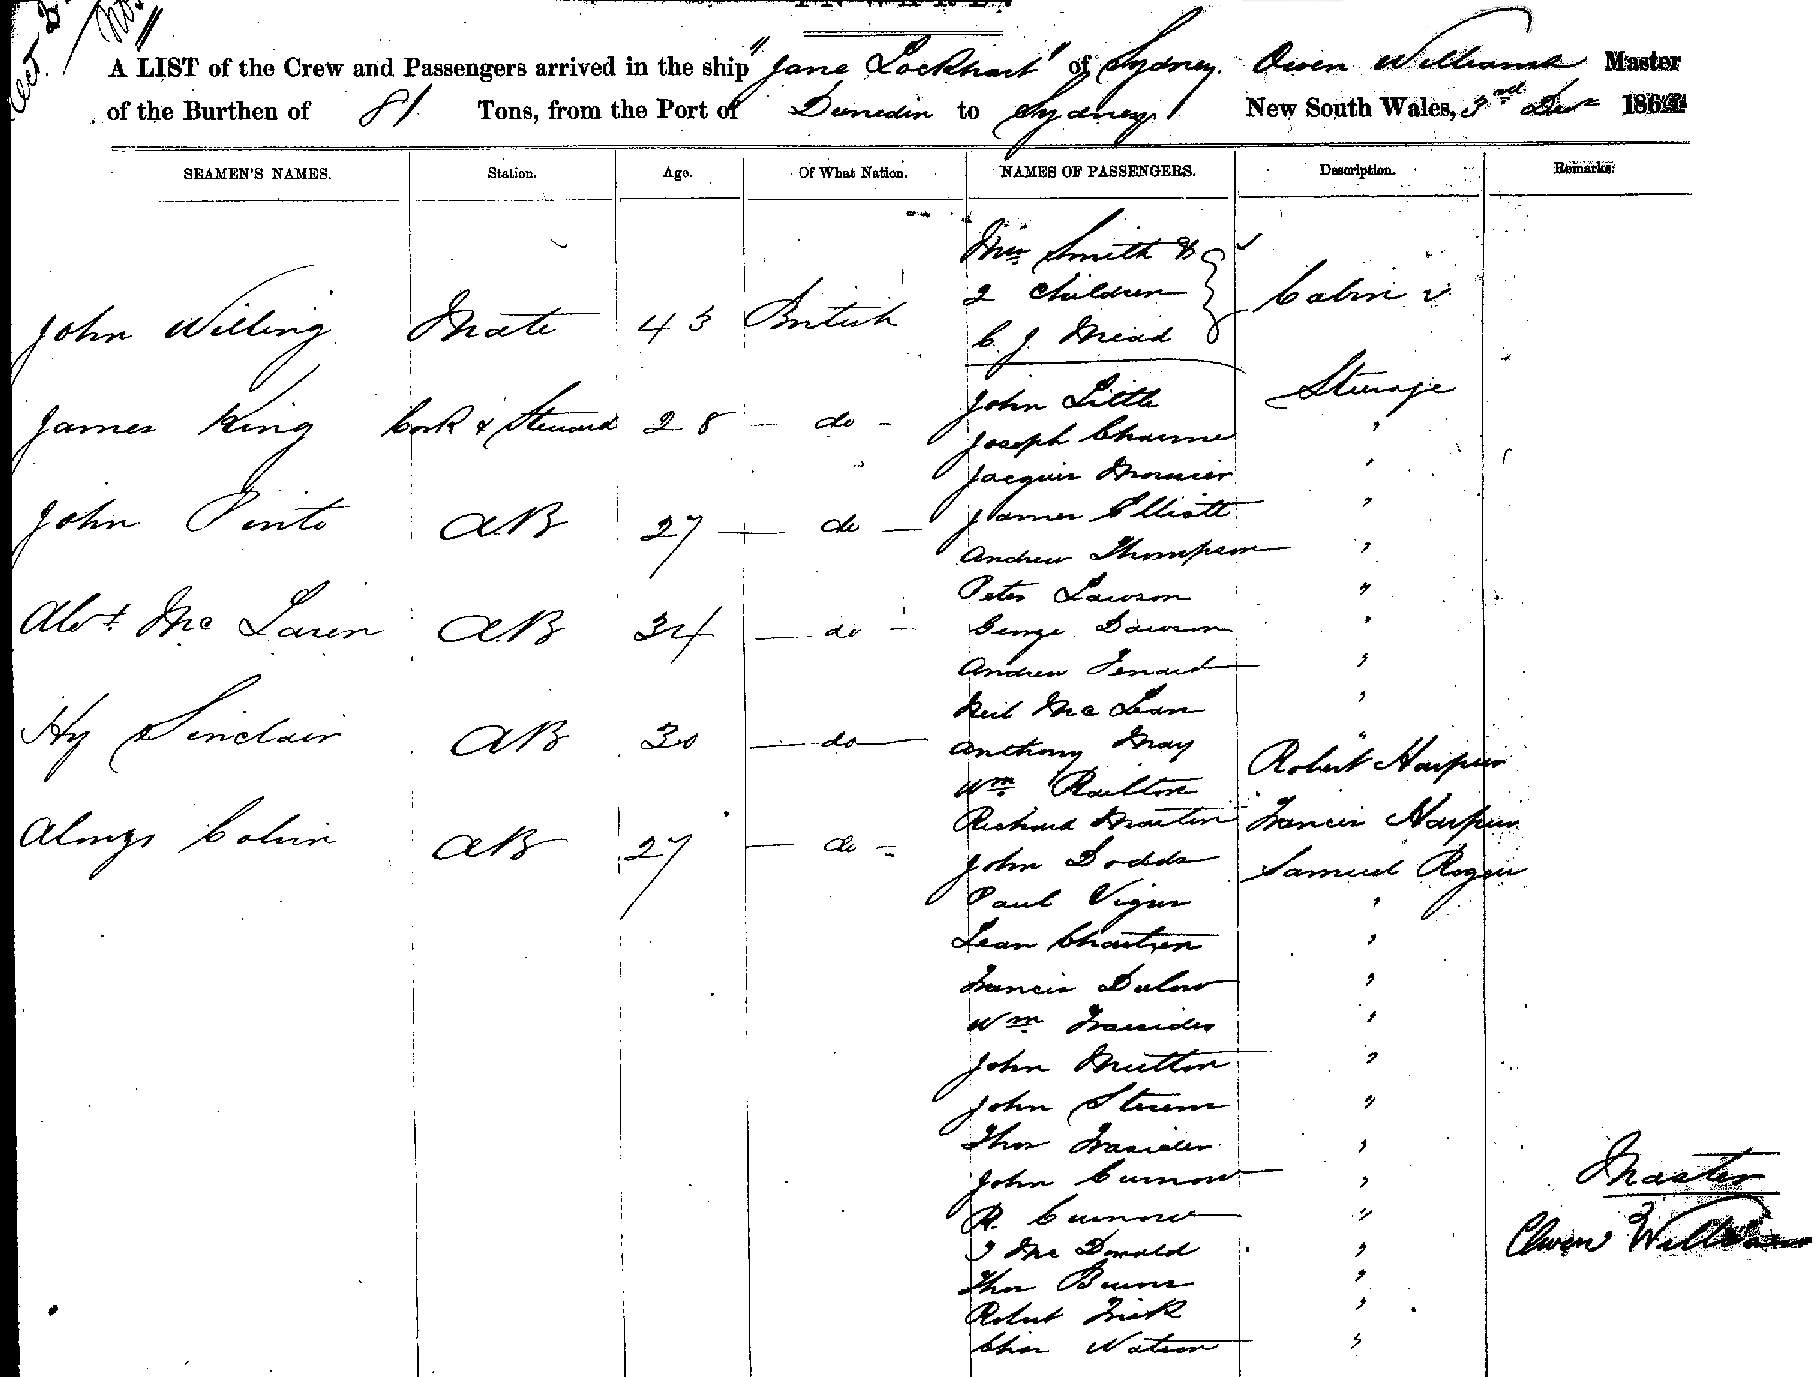 A LIST of the Crew and Passengers arrived in the ship "Jane Lockhart" of Sydney. Owen Williams Master
of the Burthen of 81 Tons, from the Port of Dunedin to Sydney New South Wales, 3rd Decr 186
SEAMEN'S NAMES. Station. Age. Of What Nation. NAMES OF PASSENGERS. Description. Remarks.
John Willing Mate 43 British
James King Cook & Steward 28 - do -
John Pinto AB 27 - do -
Alext Mc Laren AB 34 - do -
Hy Sinclair AB 30 - do -
Alonzo Colvin AB 27 - do -
Mrs Smith &
2 Children
C. J. Mead
Cabin
John Little Steerage
Joseph "
Jacques "
James Elliott "
Andrew Thompson "
Peter Lawson "
George Dawson "
Andrew "
Neil Mc Lean "
Anthony May "
Wm Railton Robert Harper
Richard Martin Francis Harper
John Dodds Samuel Roger
Paul Vigus "
Lean "
Francis "
Wm "
John Mutton "
John "
Thos "
John Curnow "
R. Curnow "
J Mc Donald "
Thos Burns "
Robert "
Chas Watson "
Master
Owen Williams